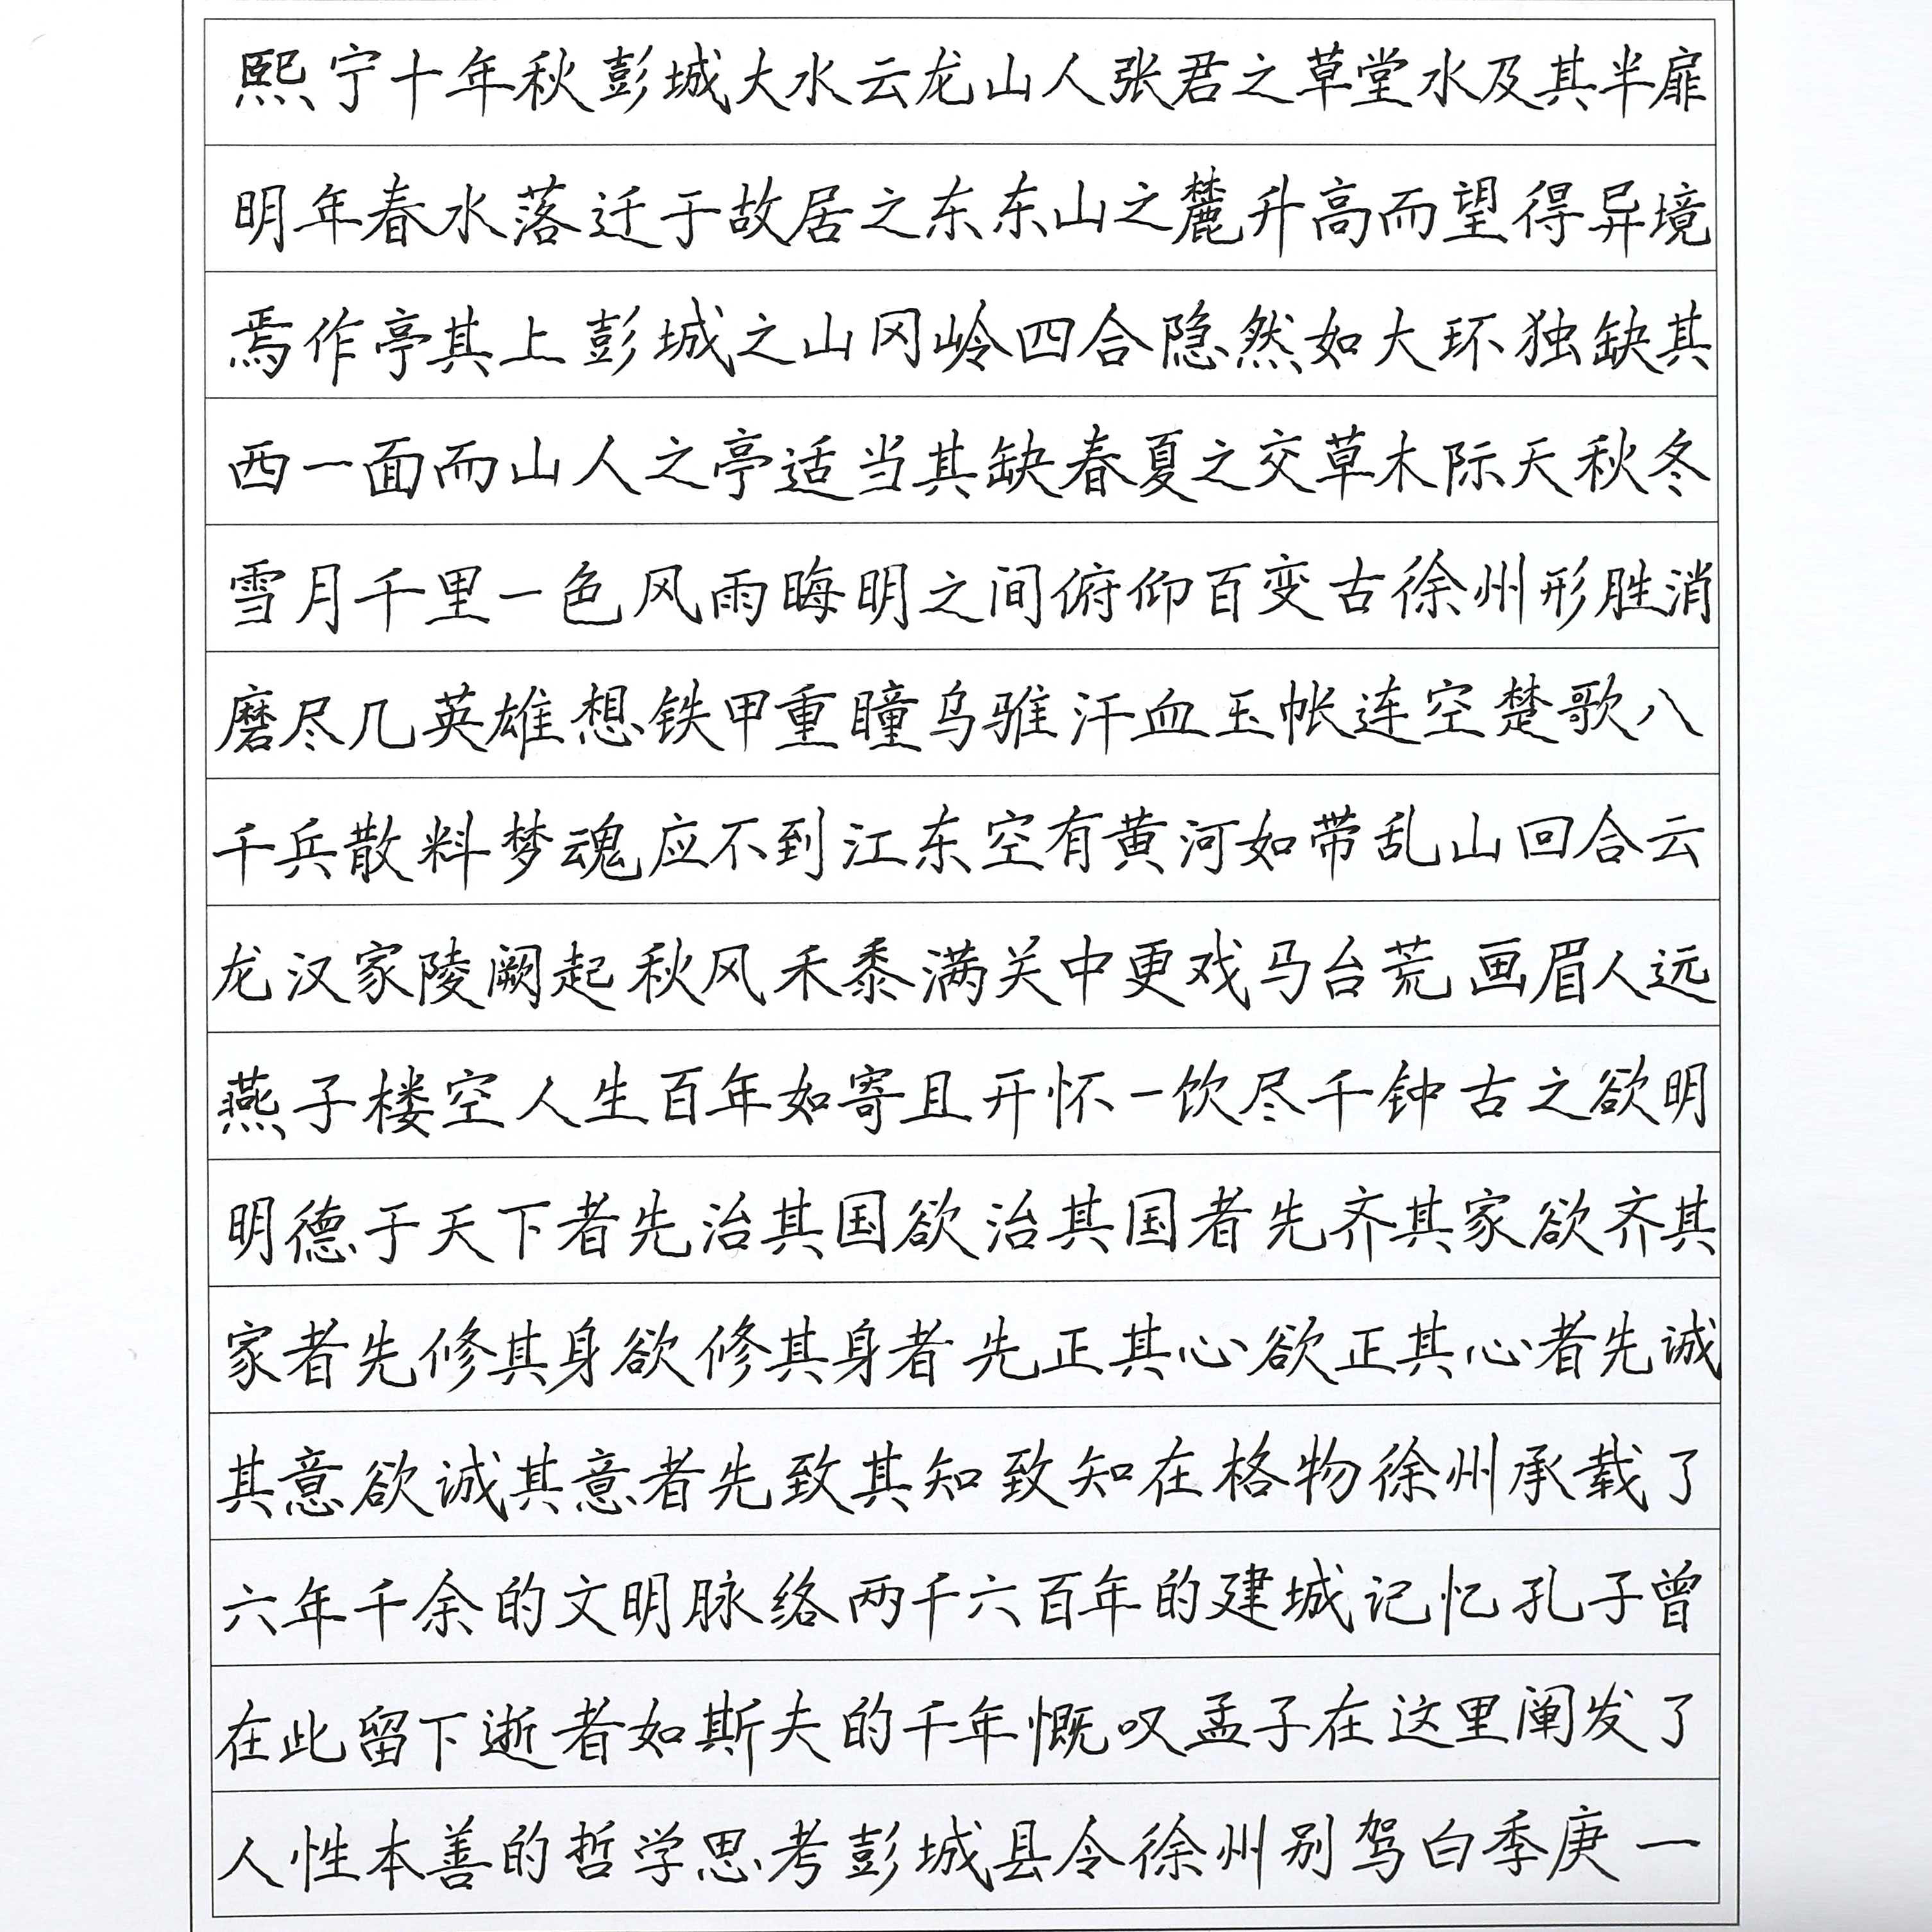 熙宁十年秋彭城大水云龙山人张君之草堂水及其半扉
明年春水落迁于故居之东东山之麓升高而望得异境
焉作亭其上彭城之山冈岭四合隐然如大环独缺其
西一面而山人之亭适当其缺春夏之交草木际天秋冬
雪月千里一色风雨晦明之间俯仰百变古徐州形胜消
磨尽几英雄想铁甲重瞳乌骓汗血玉帐连空楚歌八
千兵散料梦魂应不到江东空有黄河如带乱山回合云
龙汉家陵阙起秋风禾黍满关中更戏马台荒画眉人远
燕子楼空人生百年如寄且开怀一饮尽千钟古之欲明
明德于天下者先治其国欲治其国者先齐其家欲齐其
家者先修其身欲修其身者先正其心欲正其心者先诚
其意欲诚其意者先致其知致知在格物徐州承载了
六年千余的文明脉络两千六百年的建城记忆孔子曾
在此留下逝者如斯夫的千年慨叹孟子在这里阐发了
人性本善的哲学思考彭城县令徐州别驾白季庚一